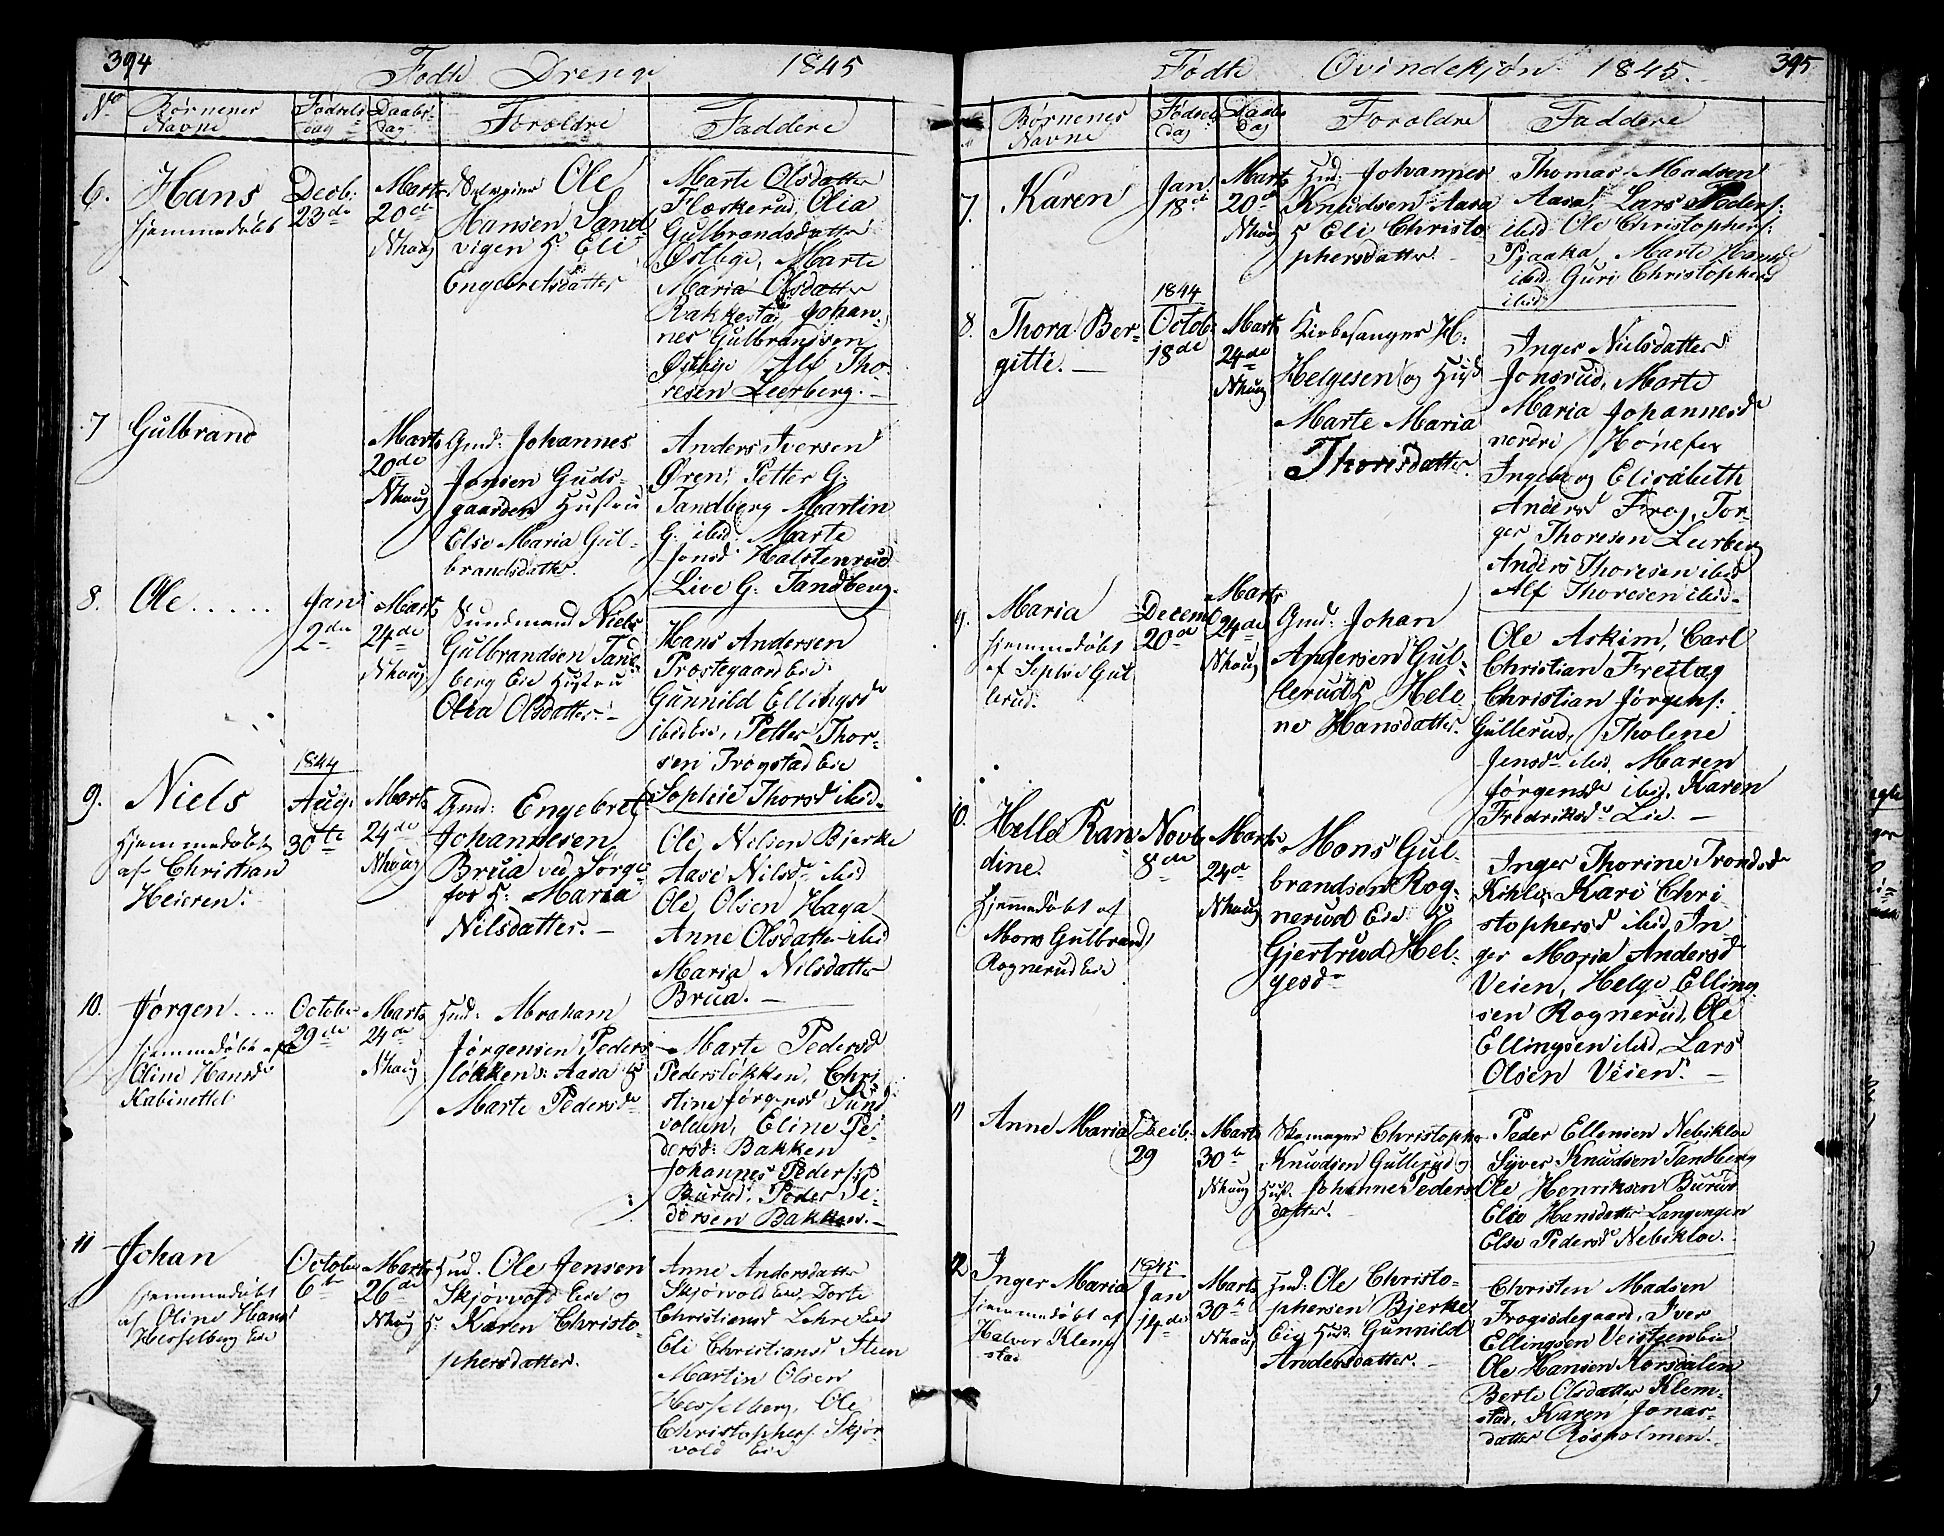 394
Fødte Drenge 1845
No
Børnenes Navne
Fødsels dag
Daabs dag
Forældre
Faddere
6.
Hans
hjemmedøbt
Decb:
23de
Marts
20de
Nhaug
Selveier Ole
Hansen Sand-
vigen H. Eli
Engebretsdatter
Marte Olsdatter
Flæskerud, Olia
Gulbrandsdatter
Østbye, Marte
Maria Olsdatter
Rakkestad, Johan-
nes Gulbrandsen
Østbye Alf Tho-
resen Leerberg. —
7
Gulbrand
Marts
20de
Nhaug
Gmd: Johannes
Jonsen Guds-
gaarden Hustru
Else Maria Gul-
brandsdatter.
Anders Iversen
Øren, Petter G.
Tandberg Martin
G. ibid, Marte
Jonsd Halstenrud
Live G. Tandberg.
8.
Ole . . . . .
Jan:
2de
Marts
24de
Nhaug
Sundmand Niels
Gulbrandsen Tand-
berg Eie Hustru
Olia Olsdatter. —
Hans Andersen
Prostegaard Eie
Gunnild Ellingsd
ibid Eie, Petter Thor-
sen Frøgstad Eie
Sophie Thorsd ibid.
9.
Niels
hjemmedøbt
af Christian
Heieren.
1844
Aug:
30te
Marts
24de
Nhaug
Gmd: Engebret
Johannesen
Brua ved Sørge-
fos H. Maria
Nilsdatter. —
Ole Nelsen Bjerke
Aase Nilsd ibid
Ole Olsen Haga
Anne Olsdatter ibid
Maria Nilsdatter
Brua. —
10.
Jørgen . . . .
hjemmedøbt af
Oline Hansd
Kabinettet
October
29de
Marts
24de
Nhaug
Hmd: Abraham
Jørgensen Peders-
løkken Aasa H
Marte Pedersd
Marte Pedersd
Pedersløkken, Chri
stine Jørgensd Sund
volden, Eline Pe-
dersd: Bakken
Johannes Peders:
Burud, Peder Pe-
dersen Bakken. —
11
Johan
hjemmedøbt
af Oline Hansd
Hesselberg Eie
October
6te
Marts
26de
Nhaug
Hmd. Ole Jensen
Skjørvold Eie og
H: Karen Christo-
phersdatter.
Anne Andersdatter
Skjørvold Eie, Dorte
Christiansd Lehre Eie
Eli Christiansd Steen
Martin Olsen
Hesselberg, Ole
Christophers. Skjør-
vold Eie
395
Fødte Qvindekjøn 1845.
Børnenes Navne
Fødsels dag
Daabs dag
Forældre
Faddere
7.
Karen
Jan.
18de
Marts
20de
Nhaug
Hmd: Johannes
Knudsen Aasa
H Eli Christo
phersdatter.
Thomas Madsen
Aasa, Lars Peders:
ibid Ole Christophers:
Pjaaka, Marte Hansd
ibid Guri Christophersd
ibid
8.
Thora Ber-
gitte. —
1844
Octob:
18de
Marts
24de
Nhaug
Kirkesanger H:
Helgesen og Hust
Marte Maria
Thoresdatter.
Inger Nielsdatter
Jonsrud, Marte
Maria Johannesd
nordre Hønefos
Ingeborg Elisabeth
Andersd Frog, Tor-
ger Thoresen Leerberg
Anders Thoresen ibid
Alf Thoresen ibid.
9.
Maria
hjemmedøbt
af Sophie Gul
lerud.
Decemb
20de
Marts
24de
Nhaug
Gmd: Johan
Andersen Gul-
lerud H Hele
ne Hansdatter.
Ole Askim, Carl
Christian Freitag
Christian Jørgens:
Gullerud, Tholene
Jensd ibid, Maren
Jørgensd ibid, Karen
Fredriksd Lie. —
10.
Helle Ran-
dine.
hjemmedøbt af
Mons Gulbrand
Rognerud Eie
Novb
8de
Marts
24de
Nhaug
Mons Gul-
brandsen Rog-
nerud Eie H
Gjertrud Hel-
gesd
Inger Thorine Trondsd
Kihle, Kari Chri
stophersd ibid, In
ger Maria Andersd
Veien, Helge Elling
sen Rognerud, Ole
Ellingsen ibid, Lars
Olsen Veien. —
11
Anne Maria
Decb.
29
Marts
30te
Nhaug
Skomager Christopher
Knudsen Gullerud og
Hust. Johanne Peders
datter.
Peder Ellensen Nebikloe
Syver Knudsen Tandberg
Ole Henriksen Burud
Elie Hansdatter Langengen
Else Pedersd Nebikloe.
12
Inger Maria
hjemmedøbt af
Halvor Klem-
stad
1845
Jan
14de
Marts
30te
Nhaug
Hmd: Ole Christo-
phersen Bjerke
Eie, Hust. Gunnild
Andersdatter. —
Christen Madsen
Frogsødegaard, Iver
Ellingsen Veistjern Eie
Ole Hansen Korsdalen
Berte Olsdatter Klem-
stad, Karen Jonas-
datter Røsholmen.